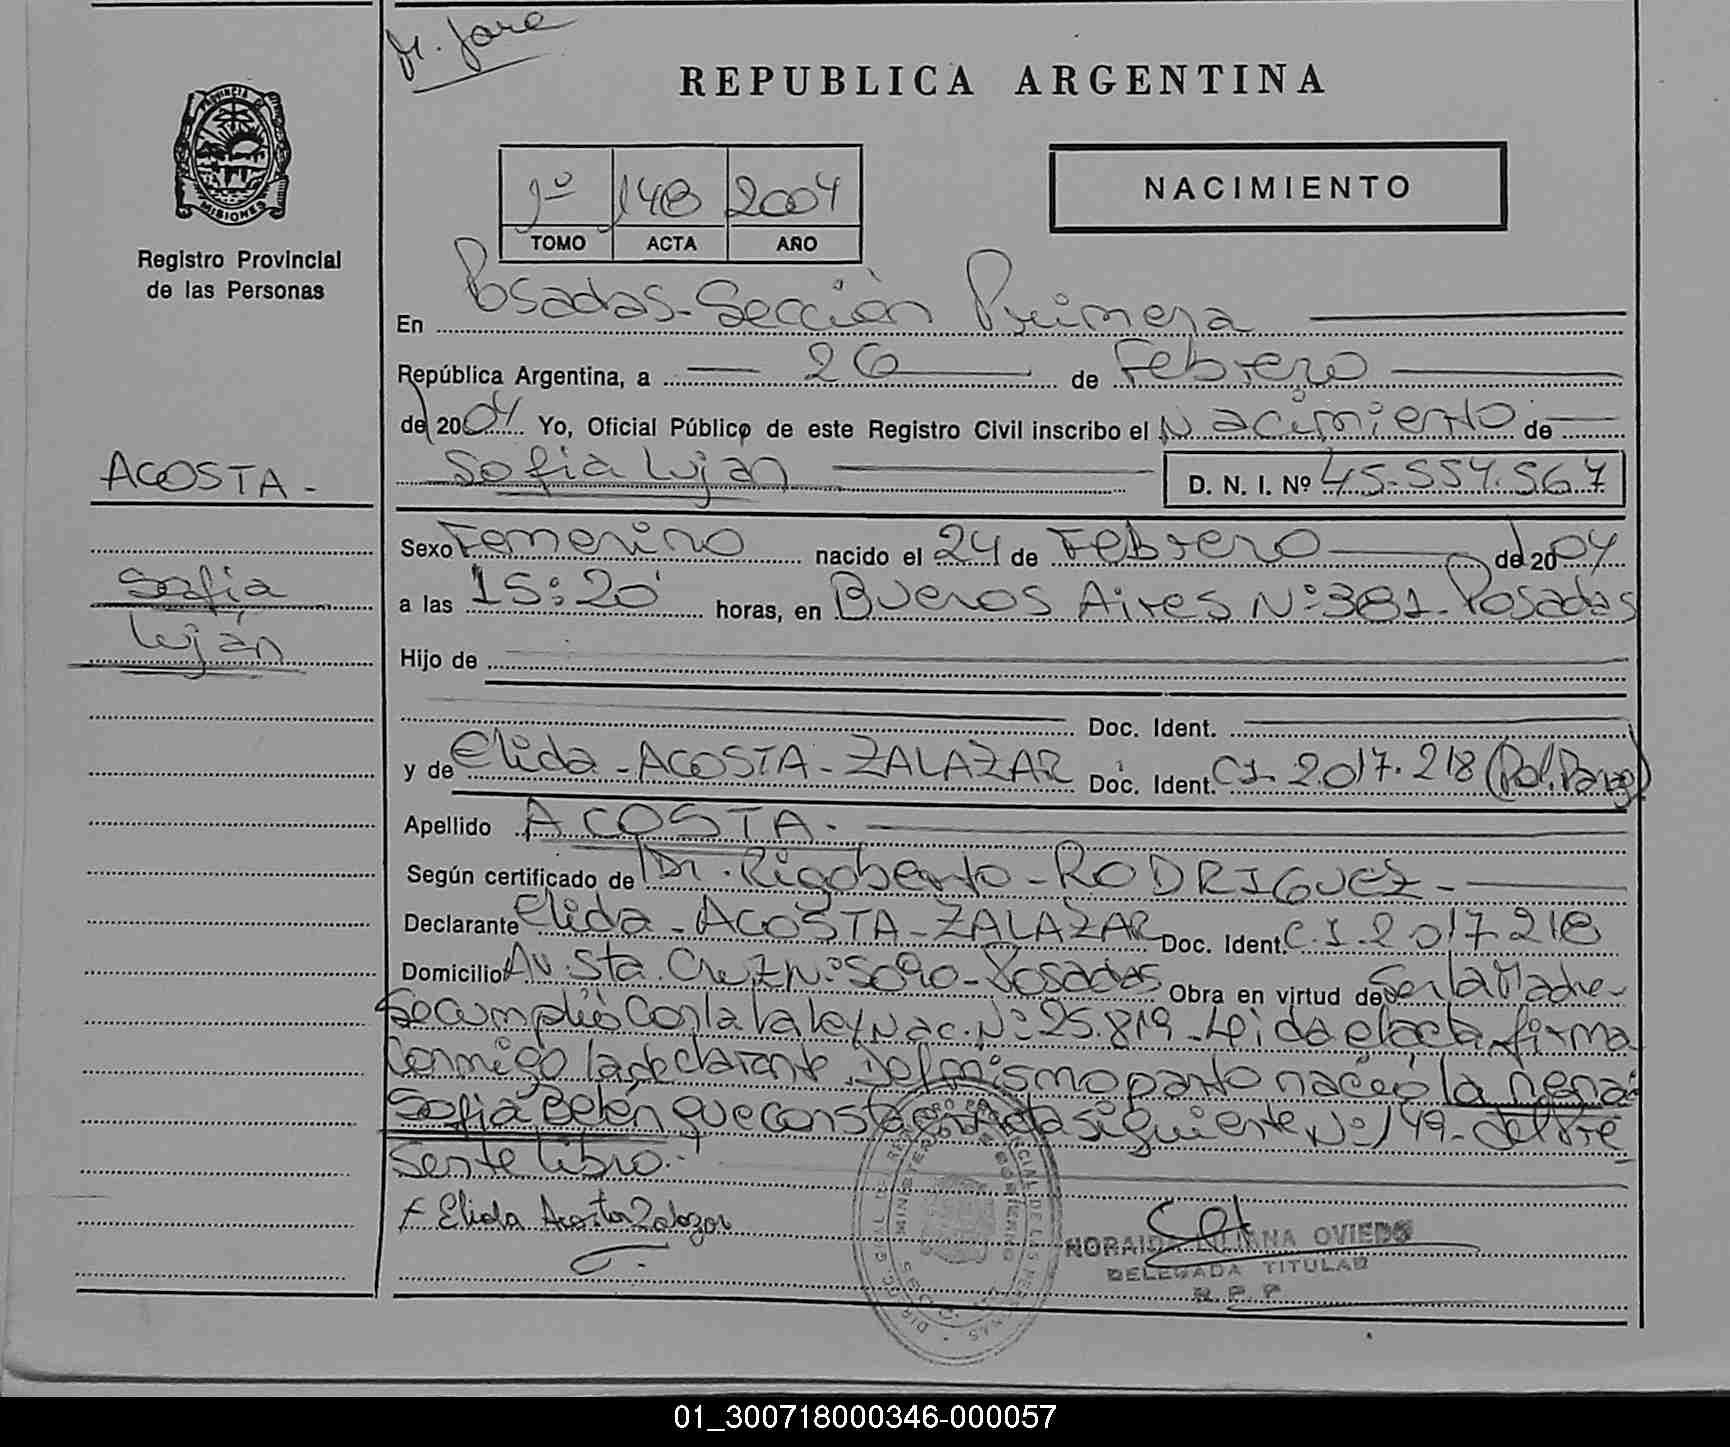 Dr. Jara
REPUBLICA ARGENTINA
PROVINCIA DE
MISIONES
1º 148 2004
TOMO ACTA AÑO
NACIMIENTO
Registro Provincial
de las Personas
En Posadas-Sección Primera
República Argentina, a 26 de Febrero
de 2004 Yo, Oficial Público de este Registro Civil inscribo el Nacimiento de
Sofia Luján D. N. I. Nº 45.557.567
ACOSTA-
Sofia
Luján
Sexo Femenino nacido el 24 de Febrero de 2004
a las 15:20 horas, en Buenos Aires Nº 381-Posadas
Hijo de
Doc. Ident.
y de Elida-ACOSTA-ZALAZAR Doc. Ident. C.I. 2.017.218 (Pol. Parag)
Apellido ACOSTA.
Según certificado de Dr. Rigoberto-RODRIGUEZ-
Declarante Elida-ACOSTA-ZALAZAR Doc. Ident. C.I. 2.017.218
Domicilio Av. Sta. Cruz Nº 5090-Posadas Obra en virtud de Ser la Madre-
Se cumplió con la la ley Nac. Nº 25.819-Leida el acta, firma
conmigo la declarante. Del mismo parto nació la nena:
Sofia Belén que consta en Acta siguiente Nº 149-del Pre
sente Libro.-
Elida Acosta Zalazar
NORAIDA LILIANA OVIEDO
DELEGADA TITULAR
R. P. P.
01_300718000346-000057